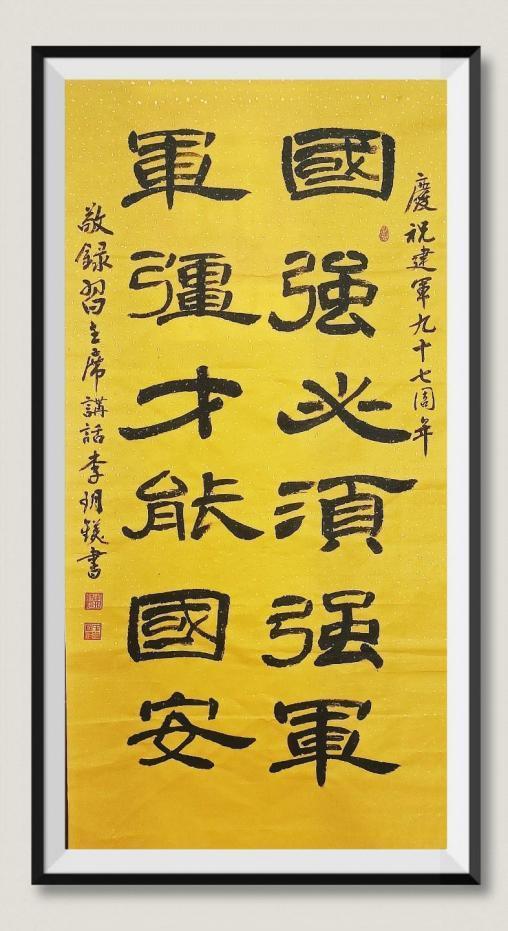 慶祝建軍九十七周年
國强必須强軍
軍彊才能國安
敬録習主席講話李明書